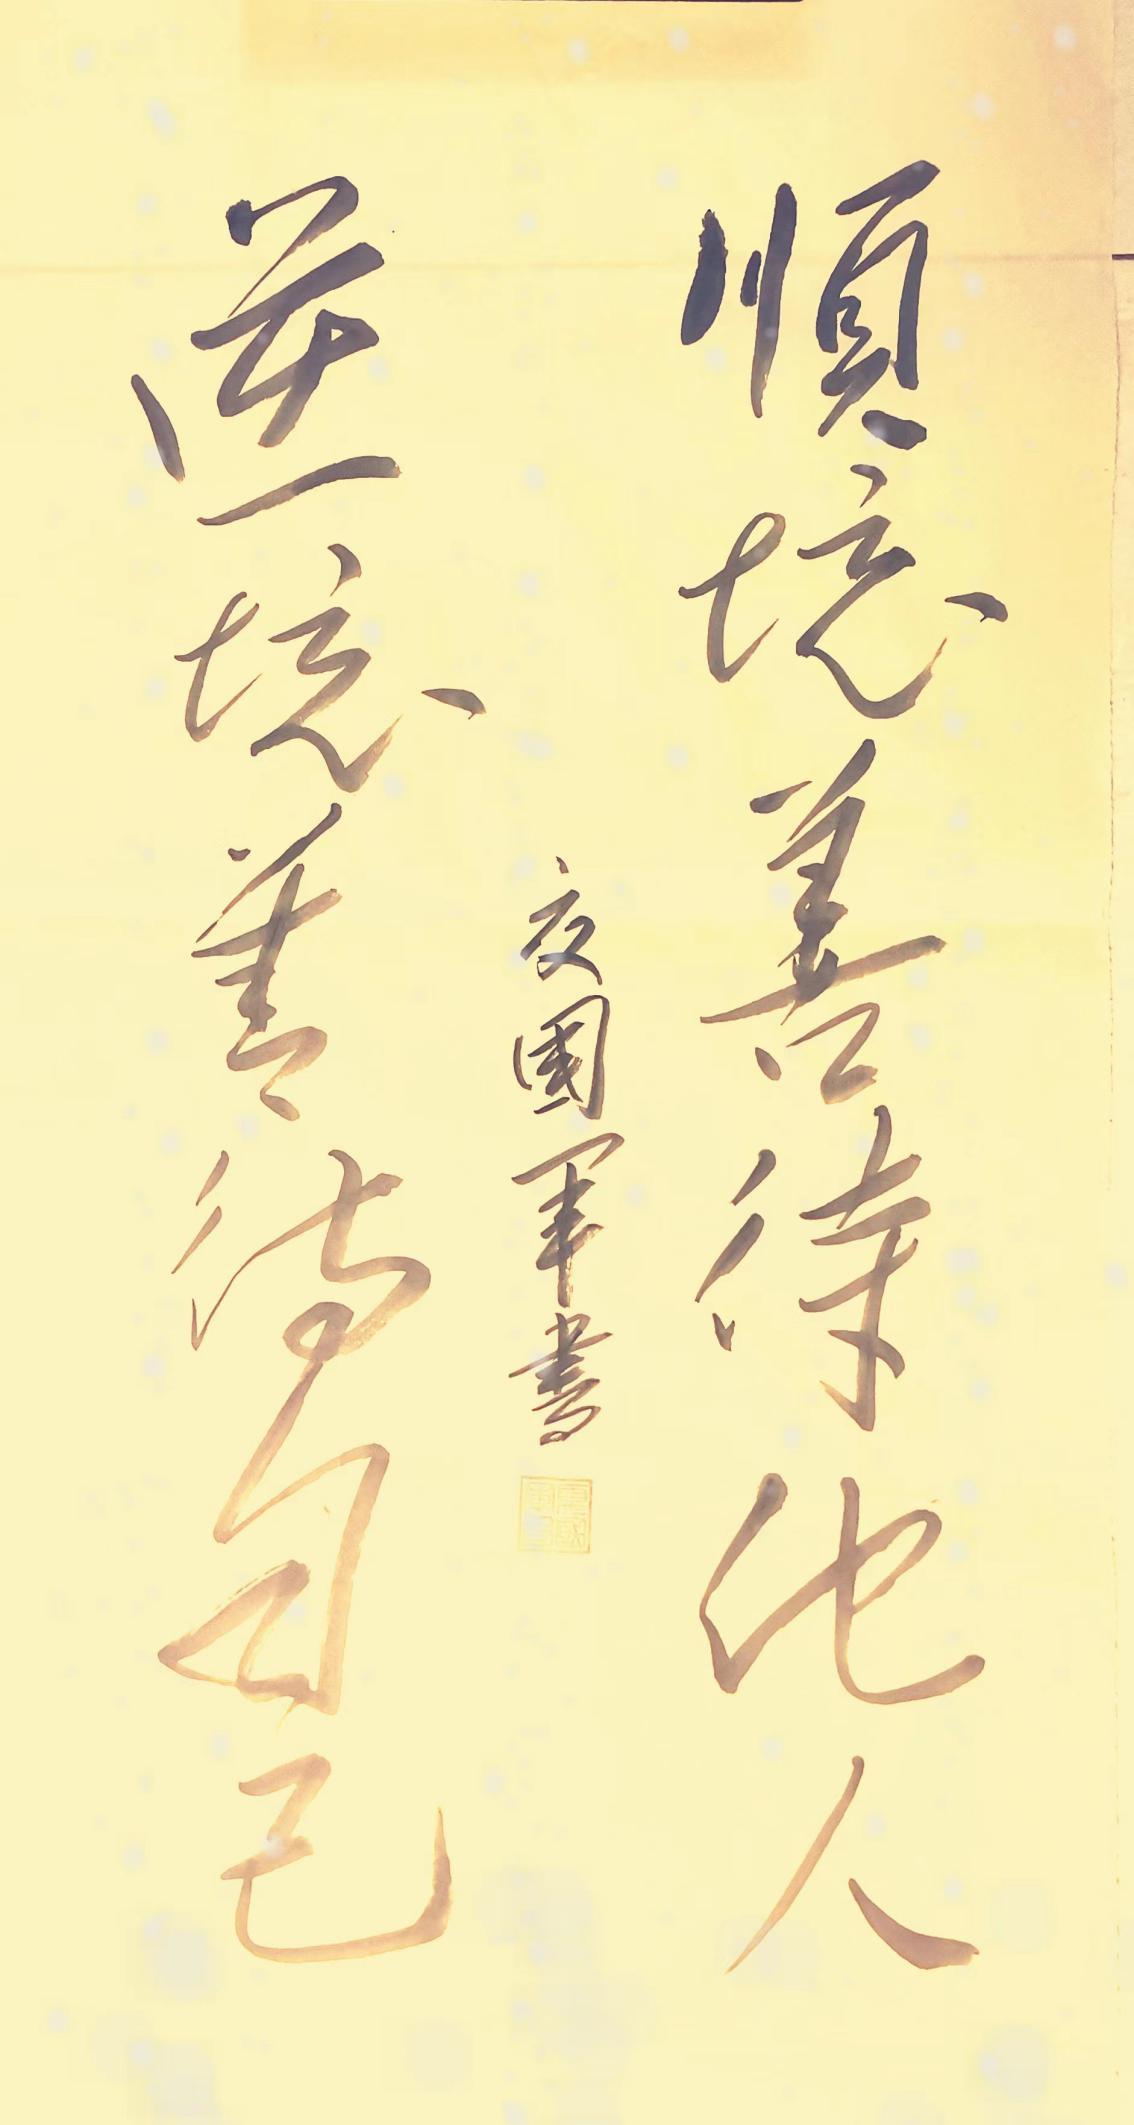 順境善待他人
逆境善待自己
夏國軍書